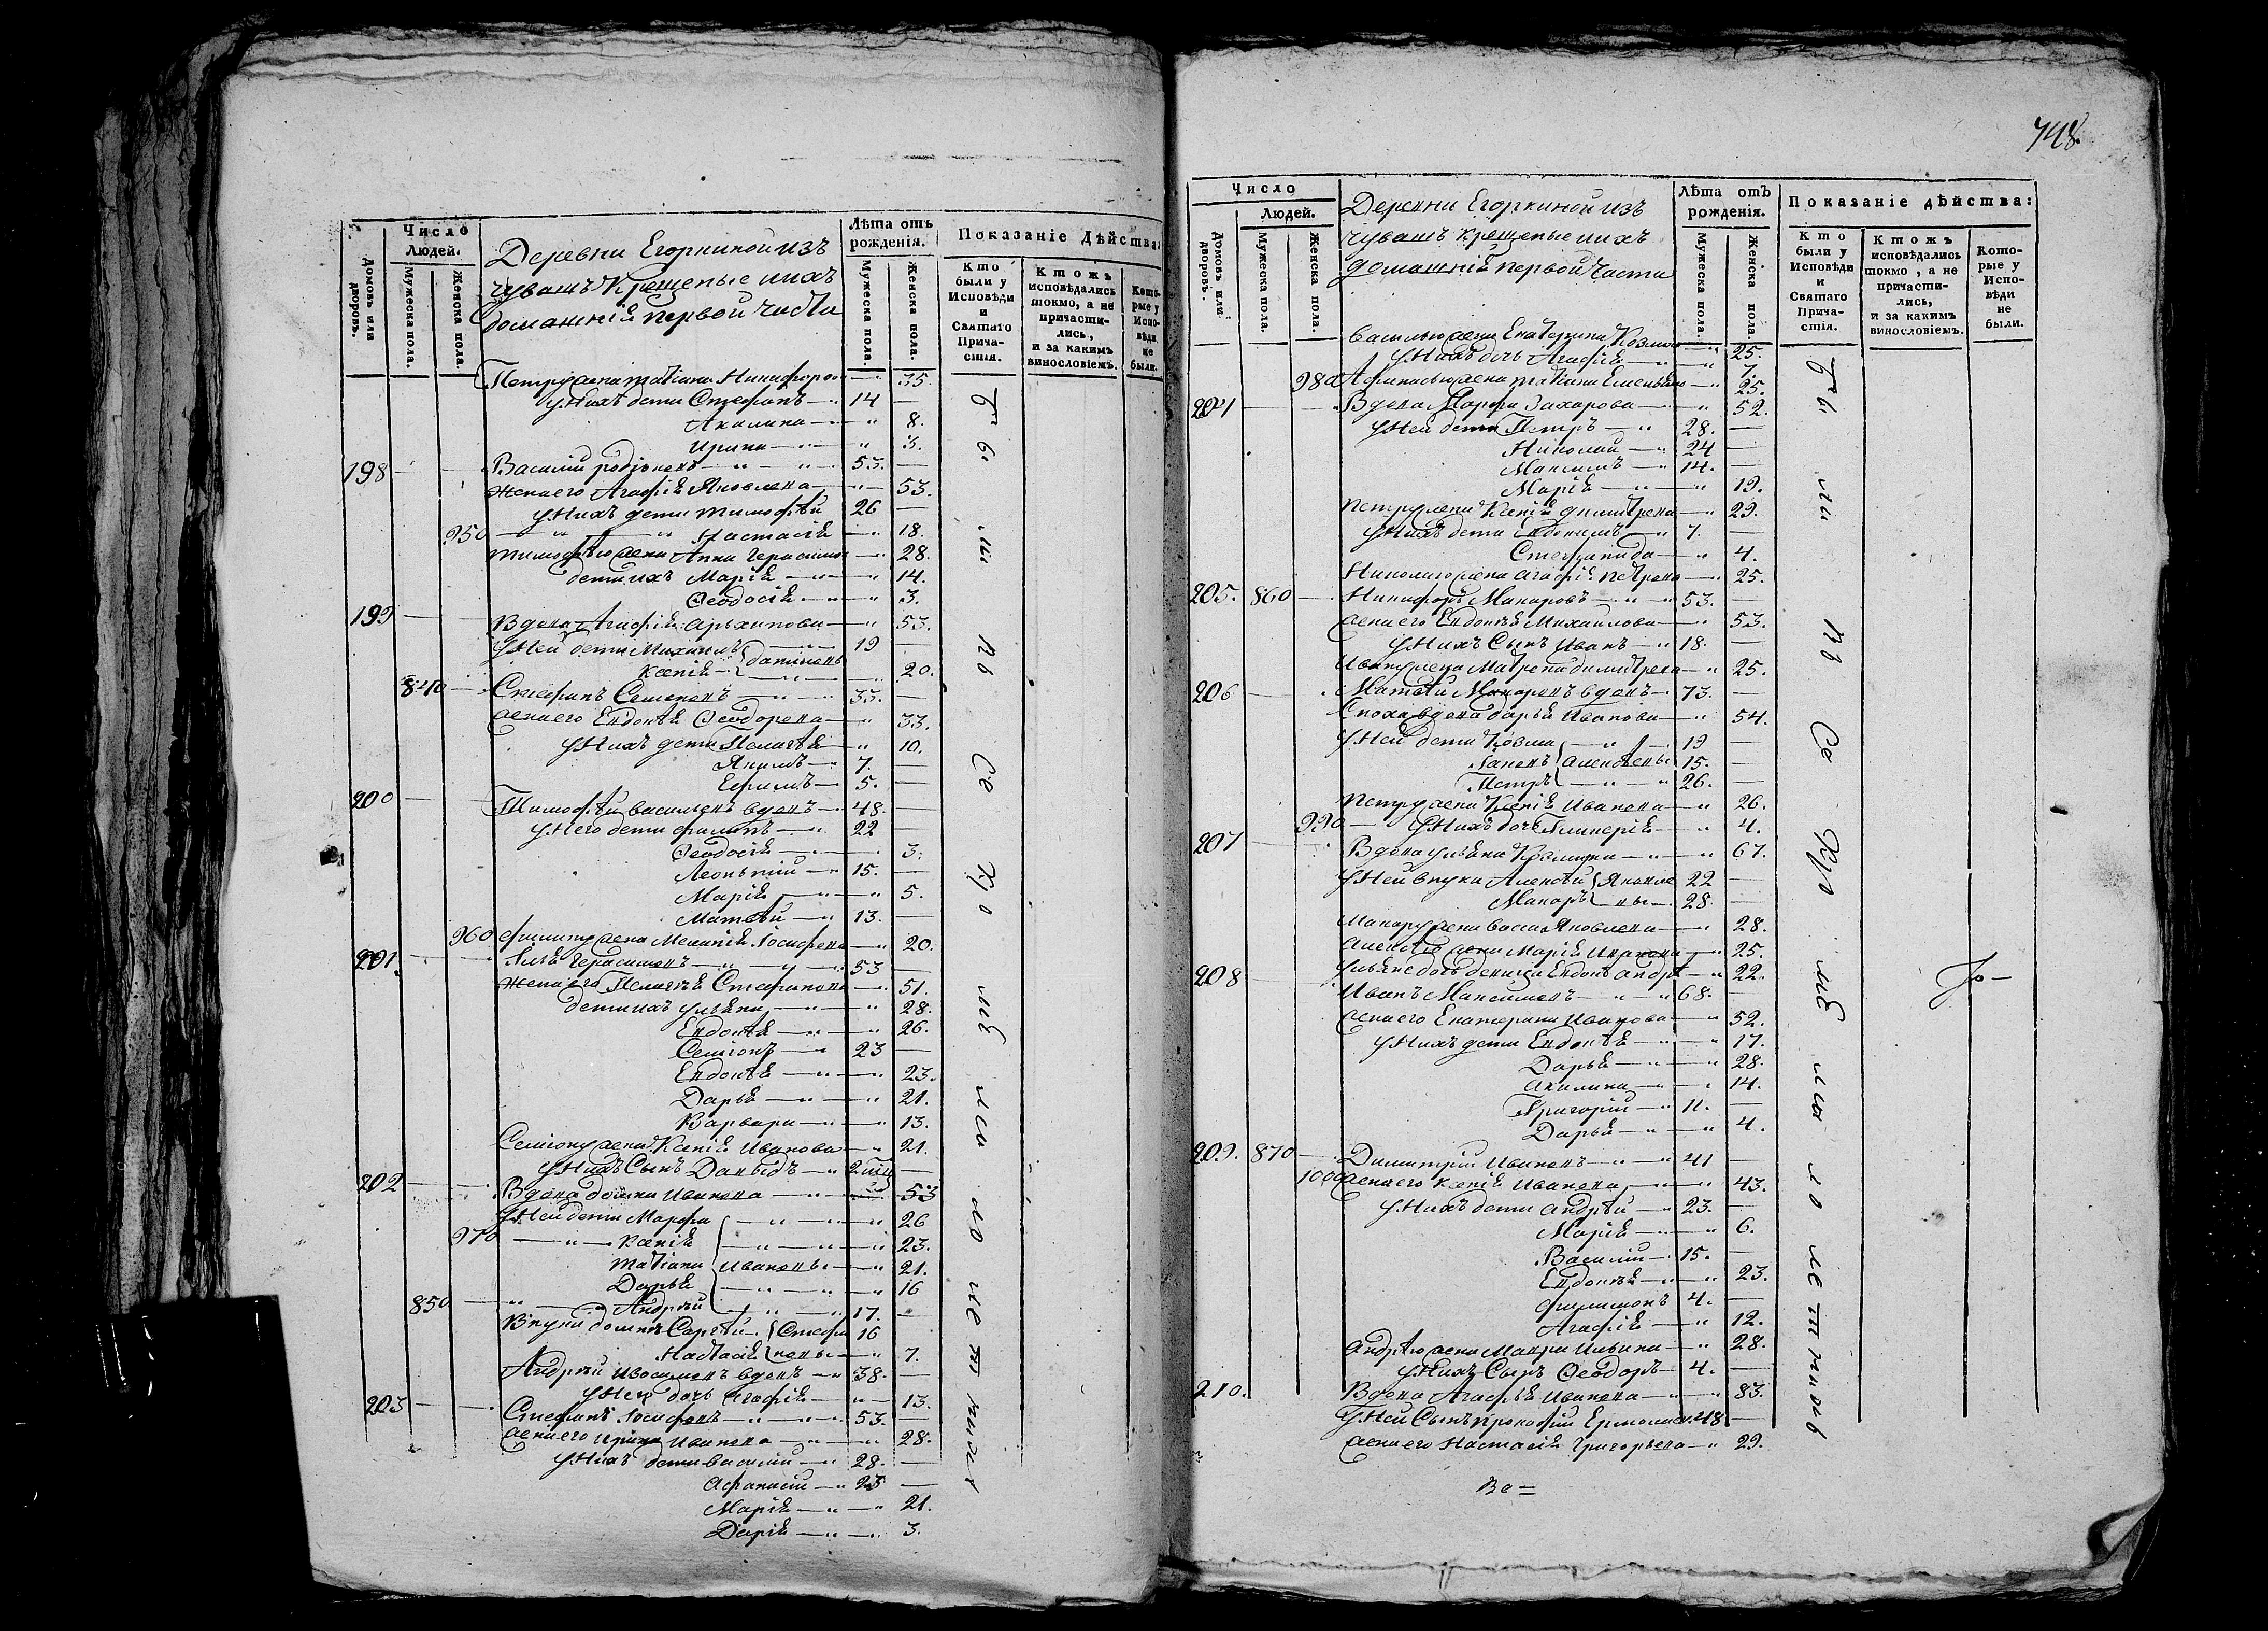 Число
Людей.
Домовъ или дворовъ.
Мужеска пола.
Женска пола.
Деревни Егоркиной изъ
чувашъ крещеные и ихъ
домашнiя первой части
Лѣта отъ рожденiя.
Мужеска пола.
Женска пола.
Показанiе Дѣйства:
Кто были у Исповѣди и Святаго Причастiя.
Ктожъ исповѣдались токмо, а не причастились, и за какимъ винословiемъ.
Которые у Исповѣди не были.
Петру жена Татiана Никифорова 35.
У нихъ дети Стефанъ 14
Акилина 8.
Ирина 3.
198 Василiй Родiоновъ 53.
Жена его Агафiя Яковлева 53.
У нихъ дети Тимофѣй 26
950 Настасiя 18.
Тимофѣю жена Анна Герасимова 28.
дети ихъ Марiя 14.
Ѳеодосiя 3.
199 Вдова Агафiя Архипова 53.
У ней дети Михаилъ 19
Ксенiя 20.
840 Стефанъ Семеновъ 33.
жена его Евдокѣя Ѳеодорова 33.
У нихъ дети Пелагѣя 10.
Якимъ 7.
Ефимъ 5.
200 Тимофѣй Васильевъ вдовъ 48.
У него дети Филипъ 22
Ѳеодосiя 3.
Леонтiй 15.
Марiя 5.
Матвѣй 13.
960 Филипу жена Меланiя Iосифова 20.
201. Илья Герасимовъ 53
Жена его Пелагѣя Стефанова 51.
дети ихъ Ульяна 28.
Евдокѣя 26.
Семiонъ 23
Евдокѣя 23.
Дарья 21.
Варвара 13.
Семiону жена Ксенiя Иванова 21.
У нихъ Сынъ Давыдъ
202 Вдова Домна Иванова 53
У ней дети Марфа 26
970 Ксенiя 23.
Татiана Ивановы 21.
Дарья 16
850 Андрѣй 17.
Внуки Домны Сергѣй Стефа 16
Настасiя новы 7.
Андрѣй вдовъ 38.
У него дочь Агафiя 13.
203 Стефанъ Iосифовъ 53.
жена его Ирина Иванова 28.
У нихъ дети Василiй 28.
Афанасiй 25
Марiя 21.
Дарiя 3.
бы ли по Се му мѣ
748.
Число
Людей.
Домовъ или дворовъ.
Мужеска пола.
Женска пола.
Деревни Егоркиной изъ
чувашъ крещеные и ихъ
домашнiй первой части
Лѣта отъ рожденiя.
Мужеска пола.
Женска пола.
Показанiе дѣйства:
Кто были у Исповѣди и Святаго Причастiя.
Ктожъ исповѣдались токмо, а не причастились, и за какимъ винословiемъ.
Которые у Исповѣди не были.
Василью жена Екатерина Козмина 25.
У нихъ дочь Агафiя 7.
980 Афанасью жена Татiана Емельянова 25.
204 Вдова Марфа Захарова 52.
У ней дети Петръ 28.
Николай 24
Максимъ 14.
Марiя 19.
Петру жена Ксенiя Димитрева 29.
У нихъ дети Евдокимъ 7.
Стефанида 4.
Николаю жена Агафiя Петрова 25.
205. 860 Никифоръ Макаровъ 53.
жена его Евдокѣя Михаилова 53.
У нихъ Сынъ Иванъ 18.
Ивану жена Матрена Димитрева 25.
206 Матвѣй Макаровъ вдовъ 73.
Сноха вдова Дарья Иванова 54.
У ней дети Козма 19
Iаковъ Алексѣевы 15.
Петръ 26.
Петру жена Ксенiя Иванова 26.
990 У нихъ дочь Гликерiя 4.
207 Вдова Ульяна Козмина 67.
У ней внуки Алексѣй Яковле 22
Макаръ вы 28.
Макару жена Васса Яковлева 28.
Алексѣю жена Марiя Иванова 25.
22.
208 Иванъ Максимовъ 68.
жена его Екатерина Иванова 52.
У нихъ дети Евдокѣя 17.
Дарья 28.
Акилина 14.
Григорiй 11.
Дарья 4.
209. 870 Димитрiй Ивановъ 41
1000 жена его Ксенiя Иванова 43.
У нихъ дети Андрѣй 23.
Марiя 6.
Василiй 15.
Евдокѣя 23.
Филимонъ 4.
Агафiя 12.
Андрѣю жена Мавра Ильина 28.
У нихъ Сынъ Ѳеодоръ 4.
210. Вдова Агафья Иванова 83.
У ней Сынъ Прокофiй Ермолаевъ 48
жена его Настасiя Григорьева 29.
бы ли по Се
Во=